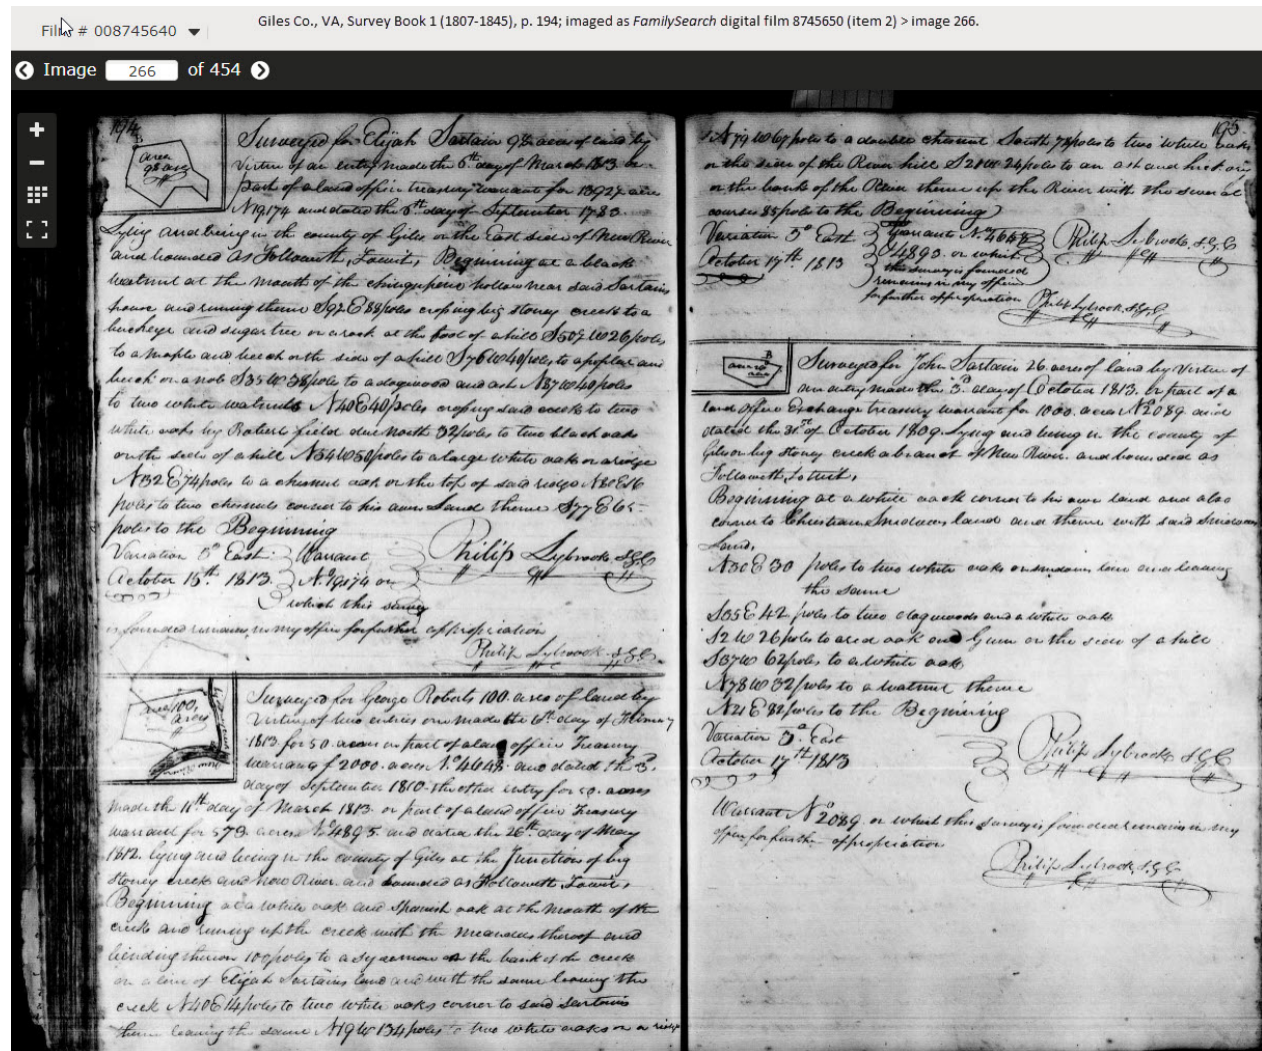 Giles Co., VA, Survey Book 1 (1807-1845), p. 194; imaged as FamilySearch digital film 8745650 (item 2) > image 266.
Film # 008745640
Image 266 of 454
194
area 98 acrs
Surveyed for Elijah Sartain 98 acres of land by
Virtue of an entry made the 6th day of March 1813 on
part of a land office treasury warrant for 18927 acres
No 19174 and dated the 5th day of September 1783
Lying and being in the county of Giles on the East side of New River
and bounded as Followeth, Towit, Beginning at a black
walnut at the mouth of the chinquipin hollow near said Sartains
house and runing thence S92 E 88 poles crossing big stoney creek to a
buckeye and sugar tree on a rock at the foot of a hill S50 W 26 poles
to a maple and beech on the side of a hill S76 W 40 poles to a poplar and
beech on a nob S35 W 38 poles to a dogwood and ash N87 W 40 poles
to two white walnuts N40 E 40 poles crossing said creek to two
white oaks by Roberts field due North 32 poles to two black oaks
on the side of a hill N54 W 50 poles to a large white oak on a ridge
N32 E 74 poles to a chesnut oak on the top of said ridge N80 E 16
poles to two chesnuts corner to his own Land thence S77 E 65
poles to the Beginning
Variation 5° East Warrant Philip Lybrook S.G.C
October 15th 1813. No 19174 on
which this survey
is founded remains in my office for further appropriation
Philip Lybrook S.G.C.
area 100 acres
Surveyed for George Roberts 100 acres of land by
Virtue of two entries one made the day of
1813 for 50 acres on part of a land office Treasury
warrant of 2000 acres No 4648 and dated the 3d
day of September 1810 the other entry for 50 acres
made the 11th day of March 1813 on part of a land office Treasury
warrant for 570 acres No 4895 and dated the 26th day of May
1812. lying and being in the county of Giles at the Junction of big
Stoney creek and New River and bounded as Followeth Towit,
Beginning at a white oak and Spanish oak at the mouth of the
creek and runing up the creek with the meanders thereof and
binding thereon 100 poles to a sycamore on the bank of the creek
on a line of Elijah Sartains land and with the same leaving the
creek N40 E 14 poles to two white oaks corner to said Sartains
thence leaving the same N19 W 134 poles to two white oaks on a ridge
195
N79 W 67 poles to a double chesnut South 78 poles to two white oaks
on the side of the River hill S21 W 24 poles to an ash and
on the bank of the River thence up the River with the several
courses 85 poles to the Beginning
Variation 5° East Warrant No 4648 Philip Lybrook, S.G.C
October 17th 1813 & 4895 on which
this survey is founded
remains in my office
for further appropriation Philip Lybrook S.G.C.
area 26 acrs
Surveyed for John Sartain 26 acres of land by Virtue of
an entry made the 3d day of October 1813. on part of a
land office Exchange treasury warrant for 1000 acres No 2089 and
dated the 31st of October 1809. Lying and being in the county of
Giles on big stoney creek a branch of New River and bounded as
Followeth, Towit,
Beginning at a white oak corner to his own land and also
corner to Christian Snidows land and thence with said Snidows
Land,
N50 E 30 poles to two white oaks on Snidows line and leaving
the same
S35 E 42 poles to two dogwoods and a white oak
S2 W 26 poles to a red oak and Gum on the side of a hill
S37 W 62 poles to a white oak
N78 W 32 poles to a walnut thence
N21 E 82 poles to the Beginning
Variation 5° East
October 17th 1813 Philip Lybrook S.G.C
Warrant No 2089. on which this survey is founded remains in my
office for further appropriation
Philip Lybrook, S.G.C